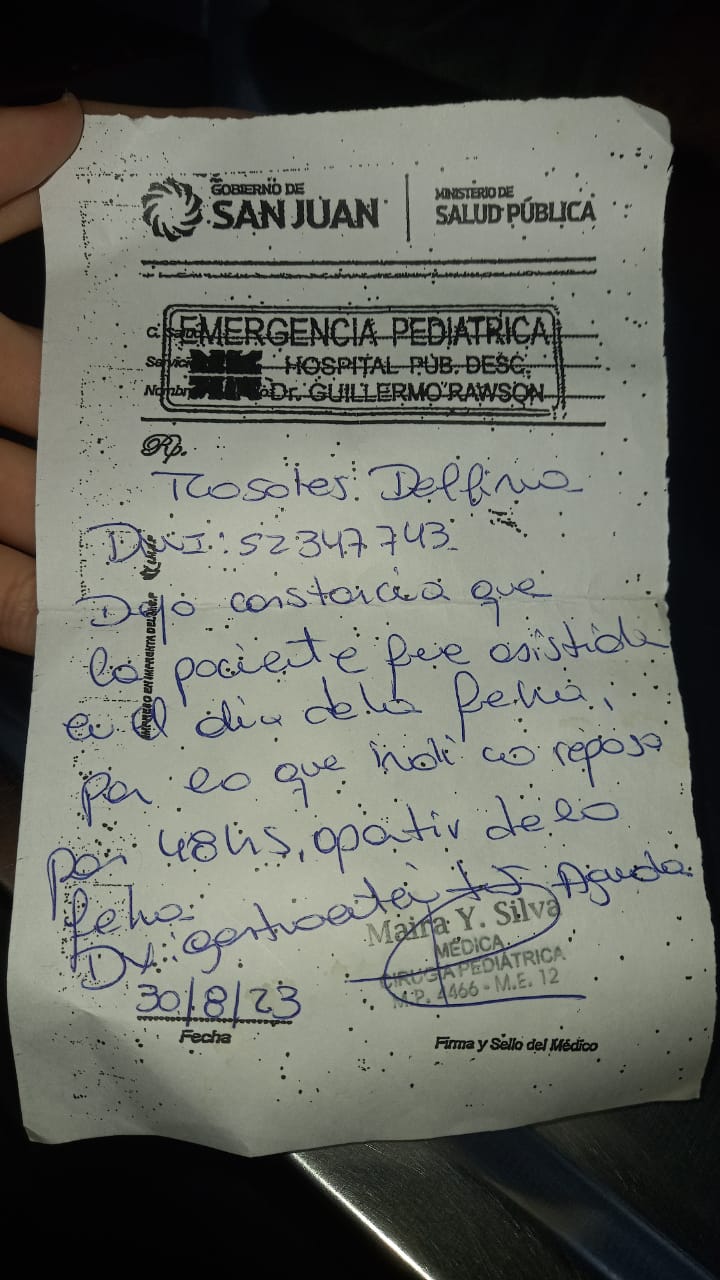 GOBIERNO DE
SAN JUAN
MINISTERIO DE
SALUD PÚBLICA
EMERGENCIA PEDIATRICA
HOSPITAL PUB. DESC.
Dr. GUILLERMO RAWSON
Rp.
Delfina
DNI: 52347743
Dejo constancia que
la paciente fue asistida
en el dia de la fecha,
por lo que indico reposo
por 48hs, a partir de la
fecha
Dx: Aguda
Maira Y. Silva
MÉDICA
CIRUGÍA PEDIÁTRICA
M.P. 4466 - M.E. 12
30/8/23
Fecha
Firma y Sello del Médico